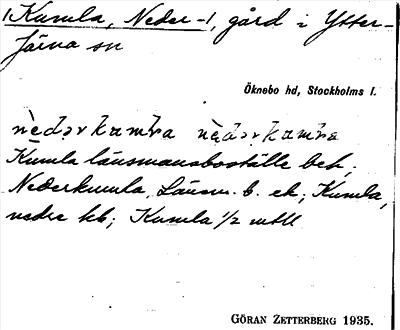 /Kumla, Neder-/, gård i Ytter-
Järna sn
Öknebo hd, Stockholms l.
Kumla länsmansboställe bek;
Nederkumla, Länsm. b. ek; Kumla,
nedre kb; Kumla 1/2 mtll
GÖRAN ZETTERBERG 1935.